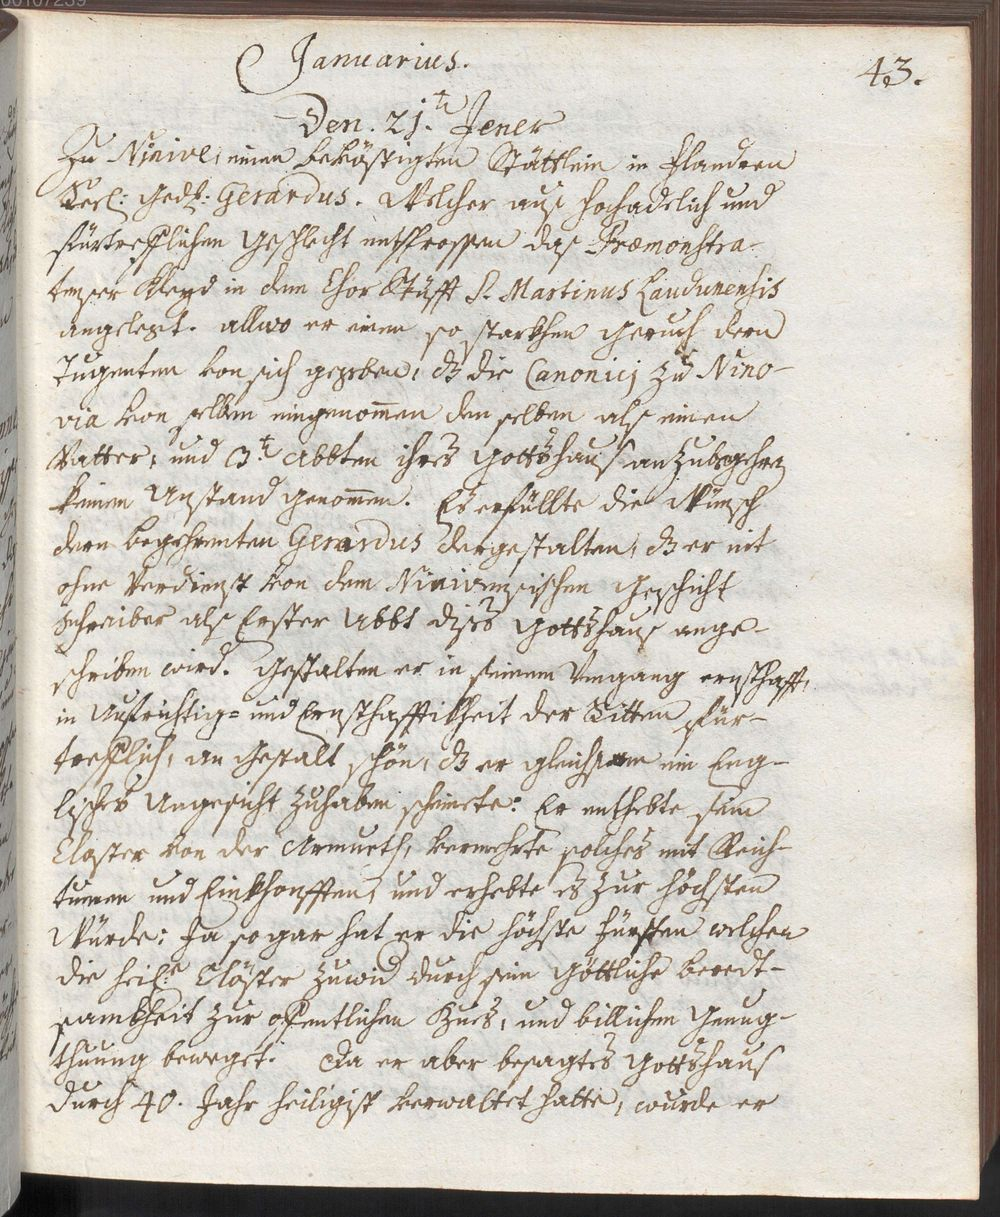 Januarius.
43.
Den. 21.t Jener
Zu Ninive, einem befästigten Stättlein in Flandren
Seel: Ged: Gerardus. Welcher auß hochadelich und
fürtrefflichen Geschlecht entsprossen das Præmonstra-
tenser Kleyd in dem Chor Stüfft S. Martinus Laudunensis
angelegt. allwo er einen so starkhen Geruch dern
Tugenten von sich gegeben, dz die Canonicj zu Nino-
via von selben eingenommen den selben als einen
Vatter, und 3.t Abbten ihres Gottshaus anzubegehren
keinen Anstand genommen. Es erfüllte die Wünsch
dern begehrenten Gerardus dergestalten, dz er nit
ohne Verdienst von dem Ninivensischen Geschicht
schreiber als Erster Abbt dises Gottshaus ange-
schriben wird. Gestalten er in seinem Umgang ernsthafft,
in Aufrichtig= und Ernsthafftikheit der Sitten für-
trefflich, an Gestalt schön, dz er gleichsam ein Eng-
lisches Angesicht zuhaben scheinete: Er enthebte sein
Closter von der Armueth, vermehrte solches mit Reich-
tumen und Einkhonfften, und erhebte es zur höchsten
Würde: Ja so gar hat er die höchste Fürsten welchen
die heil: Clöster zuwid durch sein Göttliche beredt-
samkheit zur offentlichen Buess, und billichen Genug-
thuung beweget. Da er aber besagtes Gottshaus
durch 40. Jahr heiligist verwaltet hatte, wurde er